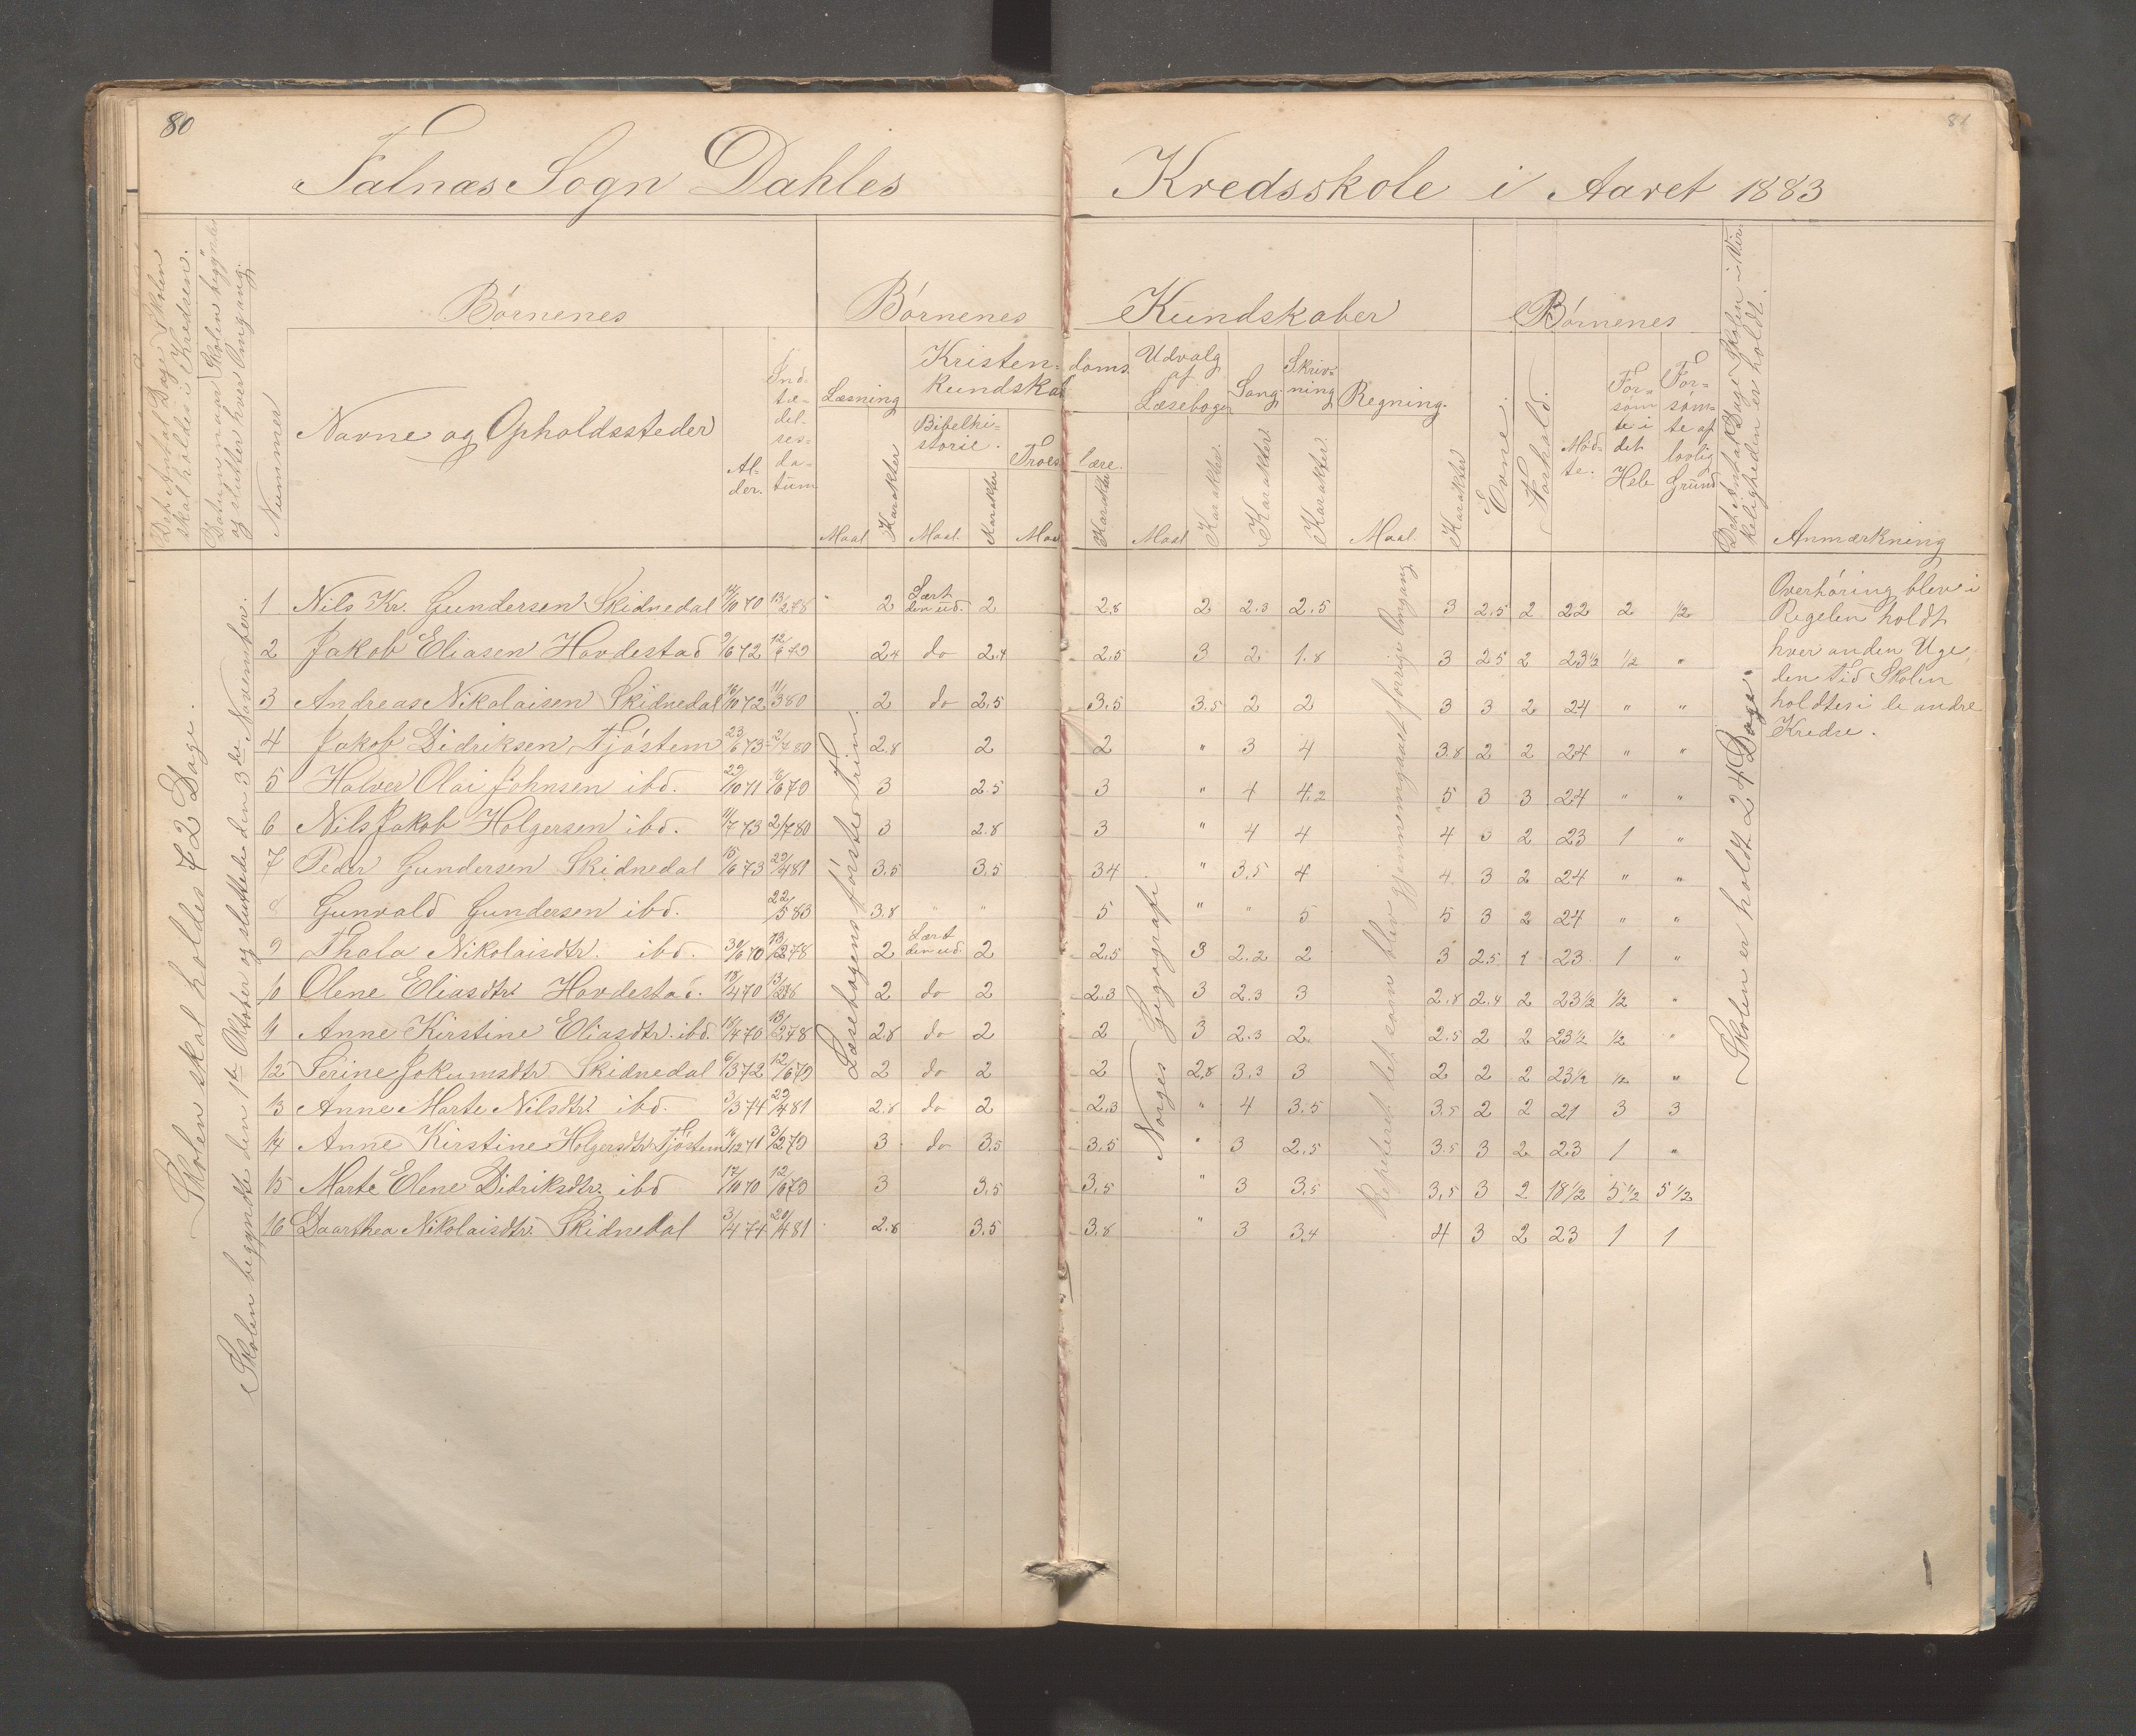 80
81
Falnæs Sogn Dahles Kredsskole i Aaret 1883
Det Antal Dage Skolen
skal holdes i Kredsen.
Datum naar Skolen begynder
og slutter hver Omgang.
Nummer
Børnenes
Navne og Opholdssteder
Al-
der.
Ind-
tæ-
del-
ses-
da-
tum
Børnenes Kundskaber
Læsning
Maal
Karakter
Kristen- doms
kundskab
Bibelhi-
storie.
Maal.
Karakter
Troes lære.
Maal
Karakter
Udvalg
af
Læsebogen
Maal
Karakter.
Sang
Karakter.
Skriv-
ning
Karakter
Regning.
Maal.
Karakter
Børnenes
Evne.
Forhold.
Mød-
te.
For-
søm
te i
det
Hele
For-
søm-
te af
lovlig
Grund
Det Antal Dage Skolen i Vir-
keligheden er holdt.
Anmærkning
Skolen skal holdes 72 Dage.
Skolen begyndte den 1te Oktober og sluttede den 3die November.
Læsebogens første Trin.
Norges Geografi.
Repeteret det som blev gjennemgaaet forrige Omgang
Skolen er holdt 24 Dage.
1 Nils Kr. Gundersen Skidnedal 14/10 70 13/2 78 " 2 Lært den ud. 2 2.8 2 2.3 2.5 3 2.5 2 22 2 1/2
2 Jakob Eliasen Hovdestad 9/6 72 12/6 79 2.4 do 2.4 2.5 3 2 1.8 3 2.5 2 23 1/2 1/2 "
3 Andreas Nikolaisen Skidnedal 16/10 72 11/3 80 2 do 2.5 3.5 3.5 2 2 3 3 2 24 " "
4 Jakob Didriksen Tjøstem 23/6 73 2/7 80 2.8 2 2 " 3 4 3.8 2 2 24 " "
5 Halver Olai Johnsen ibd. 29/10 71 16/6 79 3 2.5 3 " 4 4.2 5 3 3 24 " "
6 Nils Jakob Holgersen ibd. 11/7 73 2/7 80 3 2.8 3 " 4 4 4 3 2 23 1 "
7 Peder Gundersen Skidnedal 15/6 73 29/4 81 3.5 3.5 3.4 " 3.5 4 4 3 2 24 " "
8 Gunvald Gundersen ibd. 22/5 83 3.8 " " 5 " " 5 5 3 2 24 " "
9 Thala Nikolaisdtr. ibd. 30/6 70 13/2 78 2 Lært den ud. 2 2.5 3 2.2 2 3 2.5 1 23 1 "
10 Olene Eliasdtr. Hovdestad. 18/4 70 13/2 78 2 do 2 2.3 3 2.3 3 2.8 2.4 2 23 1/2 1/2 "
11 Anne Kirstine Eliasdtr. ibd. 18/4 70 13/2 78 2.8 do 2 2 3 2.3 2. 2.5 2 2 23 1/2 1/2 "
12 Serine Jokumsdtr Skidnedal 6/3 72 12/6 79 2 do 2 2 2.8 3.3 3 2 2 2 23 1/2 1/2 "
13 Anne Marte Nilsdtr. ibd. 3/3 74 29/4 81 2.8 do 2 2.3 " 4 3.5 3.5 2 2 21 3 3
14 Anne Kirstine Holgersdtr. Tjøstem 16/12 71 3/2 79 3 do 3.5 3.5 " 3 2.5 3.5 3 2 23 1 "
15 Marte Elene Didriksdtr. ibd 17/10 70 12/6 79 3 3.5 3.5 " 3 3.5 3.5 3 2 18 1/2 5 1/2 5 1/2
16 Daarthea Nikolaisdtr. Skidnedal 3/4 74 29/4 81 2.8 3.5 3.8 " 3 3.4 4 3 2 23 1 1
Overhøring blev i
Regelen holdt
hver anden Uge,
den Tid Skolen
holdtes i de andre
Kredse.